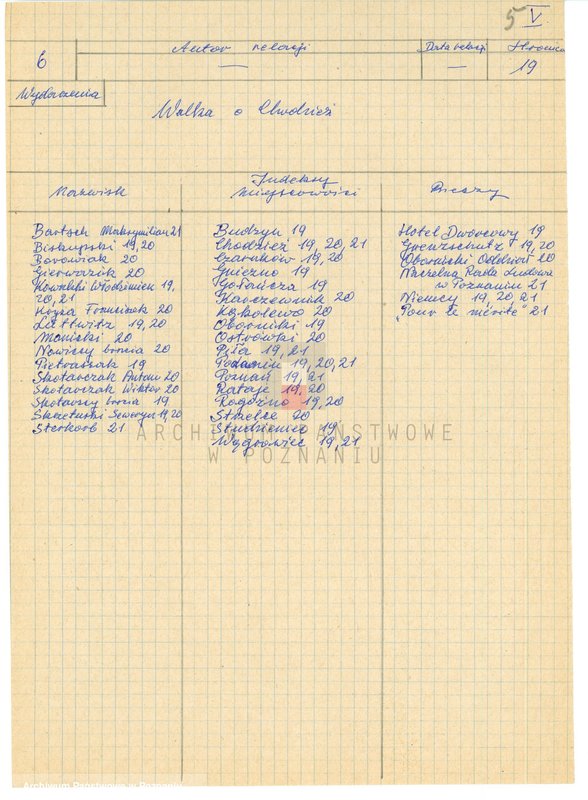 5 V
Autor relacji
Data relacji
Stronica
6
—
—
19
Wydarzenia
Walka o Chodzież
Indeksy
Nazwisk
Miejscowości
Rzeczy
Bartsch Maksymilian 21
Biskupski 19, 20
Borowiak 20
Gierwazik 20
Kowalski Włodzimierz 19,
20, 21
Kozka Franciszek 20
Lattwitz 19, 20
Maniski 20
Nowiccy bracia 20
Pietraszak 19
Skotarczak Antoni 20
Skotarczak Wiktor 20
Skotarscy bracia 19
Skrzetuski Seweryn 19, 20
Sterkorb 21
Budzyń 19
Chodzież 19, 20, 21
Czarnków 19, 20
Gniezno 19
Gołańcza 19
Karczewnik 20
Kąkolewo 20
Oborniki 19
Ostrówki 20
Piła 19, 21
Podanin 19, 20, 21
Poznań 19, 21
Rataje 19, 20
Rogoźno 19, 20
Strzelce 20
Studzieniec 19
Wągrowiec 19, 21
Hotel Dworcowy 19
Grenzschutz 19, 20
Obornicki Oddział 20
Naczelna Rada Ludowa
w Poznaniu 21
Niemcy 19, 20, 21
„Pour le mérite" 21
ARCHIWUM PAŃSTWOWE
W POZNANIU
Archiwum Państwowe w Poznaniu